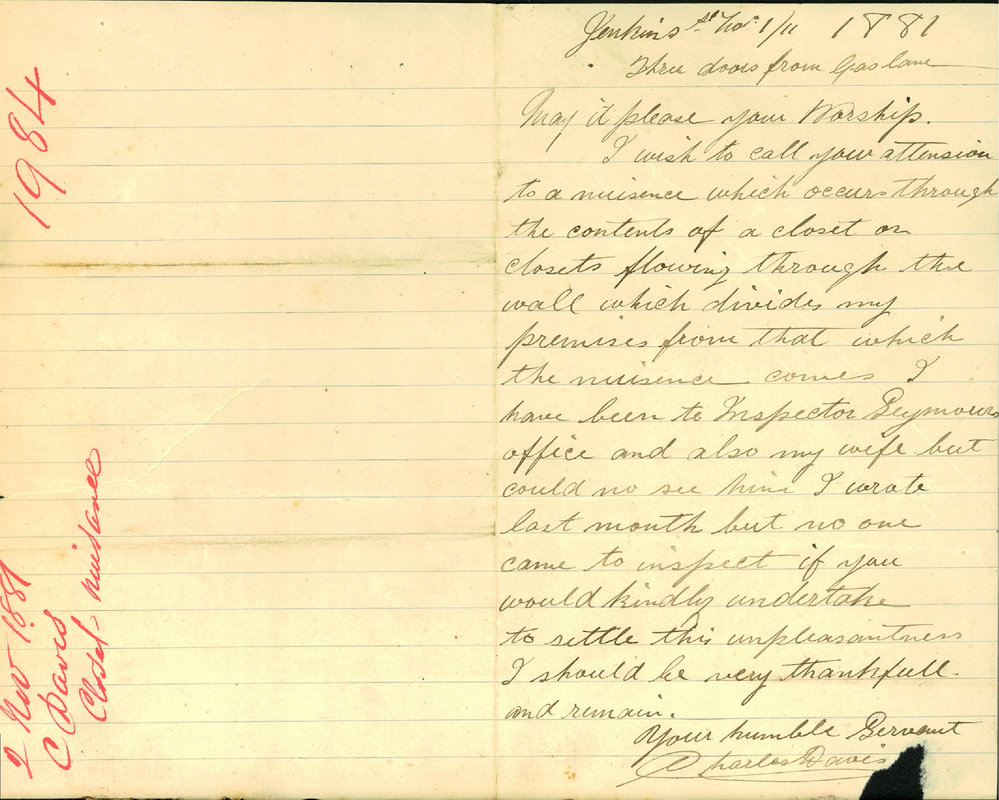 Jenkins St Nov 1/11 1881
Three doors from Gas lane
May it please your Worship.
I wish to call your attension
to a nuisence which occurs through
the contents of a closet or
closets flowing through the
wall which divides my
premises from that which
the nuisence comes I
have been to Inspector Seymours
office and also my wife but
could no see him I wrote
last month but no one
came to inspect if you
would kindly undertake
to settle this unpleasantness
I should be very thankfull.
and remain.
Your humble Servant
Charles Davis
1984
2 Nov 1881
C Davis
Closet nuisance